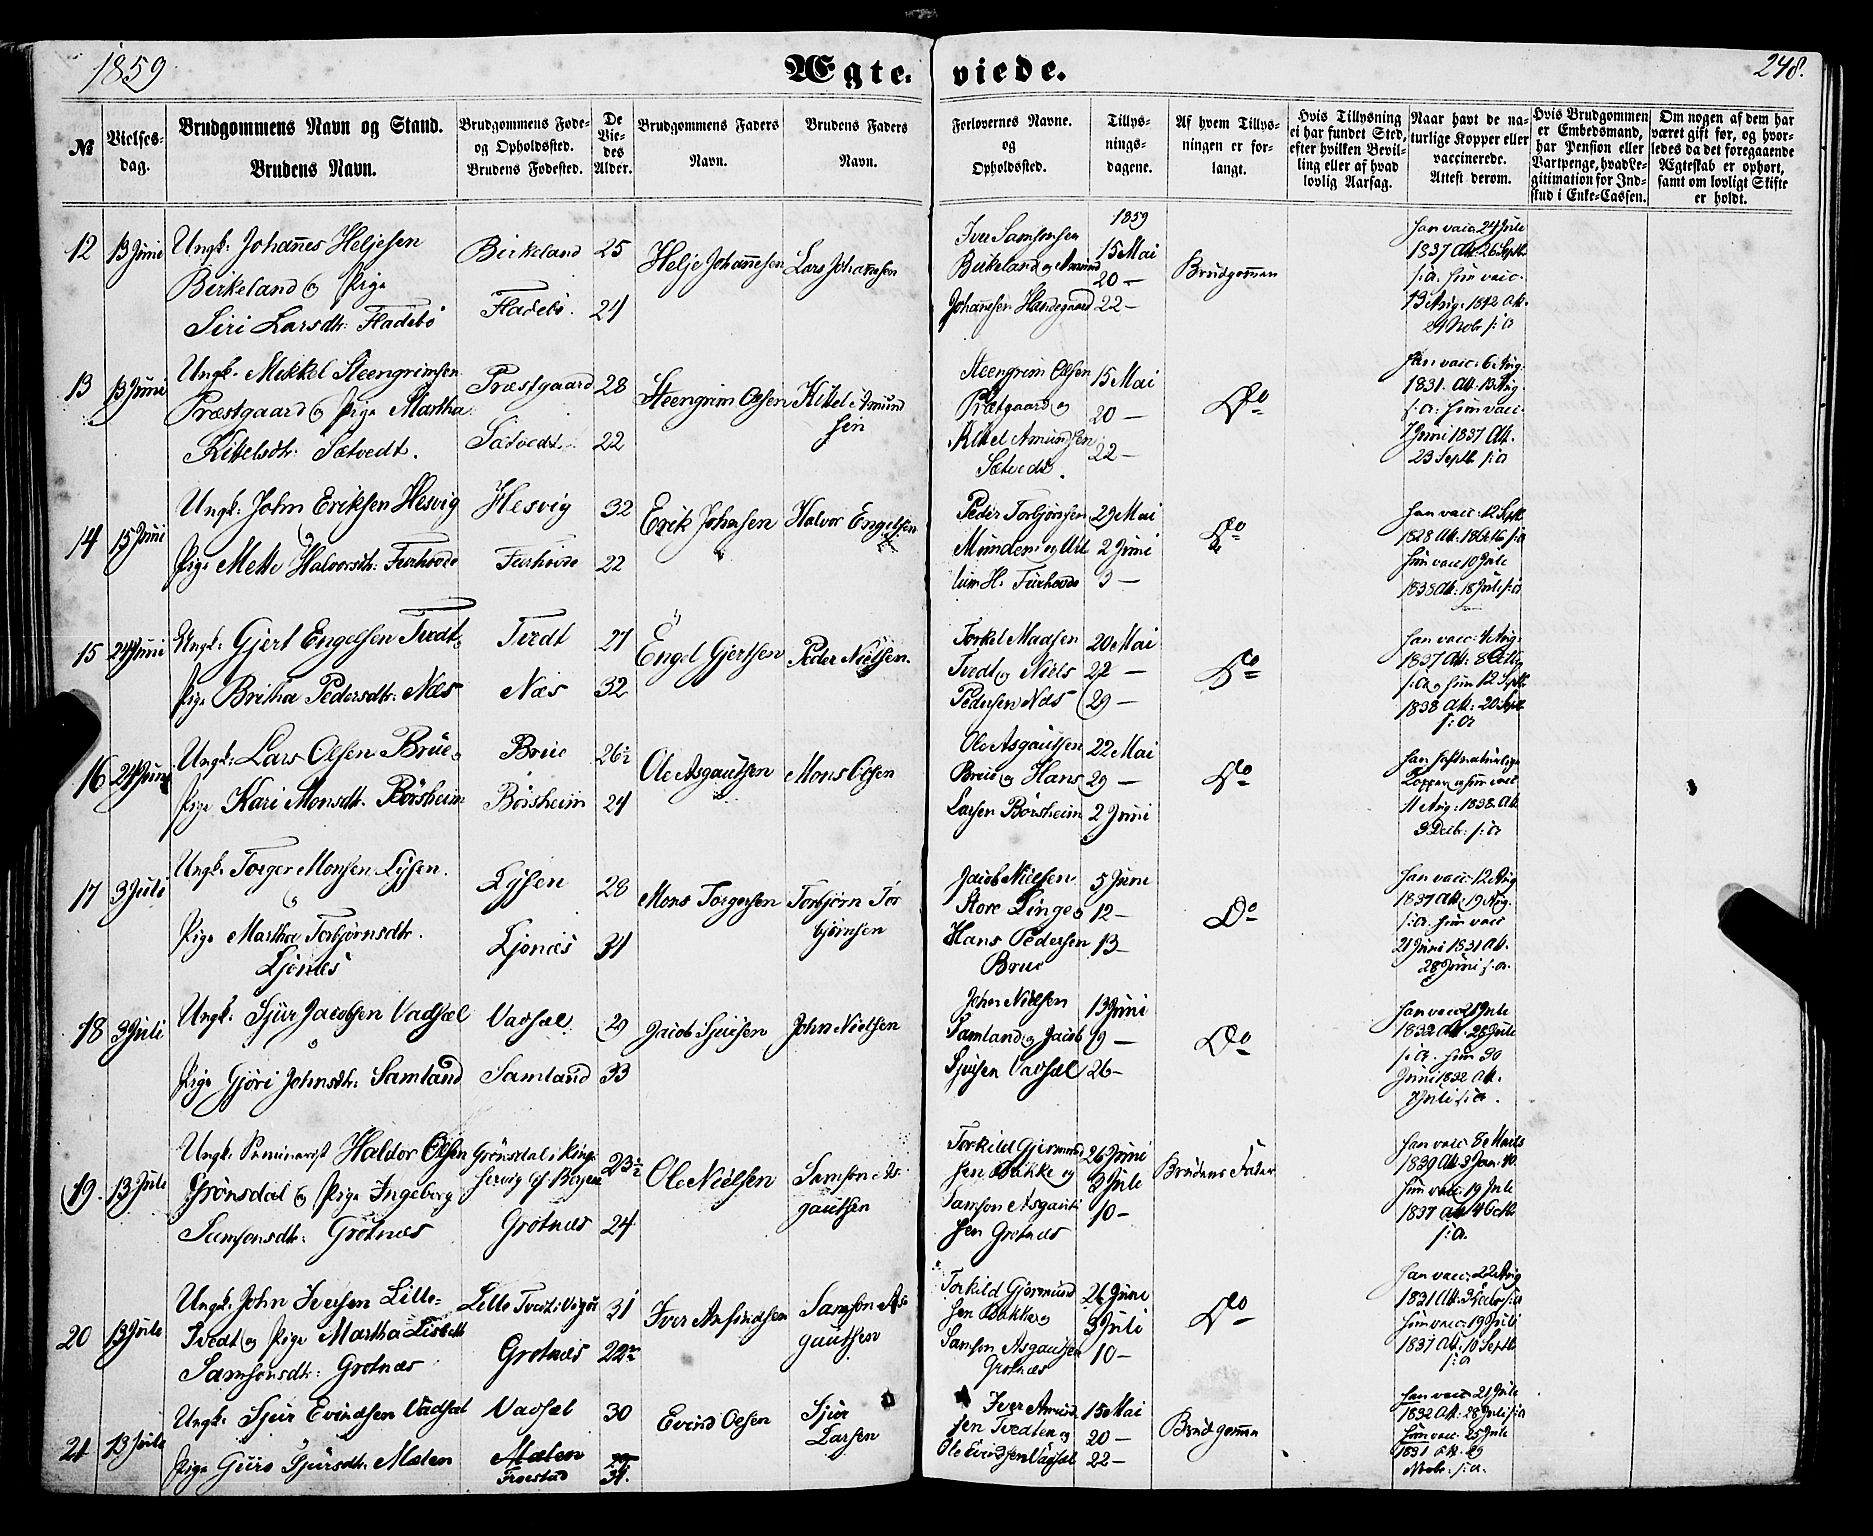 1859
Ægteviede.
248.
№
Vielsesdag.
Brudgommens Navn og Stand.
Brudens Navn.
Brudgommens Føde-
og Opholdssted.
Brudens Fødested.
De
Vie-
des
Alder.
Brudgommens Faders
Navn.
Brudens Faders
Navn.
Forlovernes Navne.
og
Opholdssted.
Tillys-
nings-
dagene.
Af hvem Tillys-
ningen er for-
langt.
Hvis Tillysning
ei har fundet Sted,
efter hvilken Bevil-
ling eller af hvad
lovlig Aarsag.
Naar havt de na-
turlige Kopper eller
vaccinerede.
Attest derom.
Hvis Brudgommen
er Embedsmand,
har Pension eller
Vartpenge, hvad Le-
gitimation for Ind-
skud i Enke-Cassen.
Om nogen af dem har
været gift før, og hvor-
ledes da det foregaaende
Ægteskab er ophørt,
samt om lovligt Skifte
er holdt.
12 13 Juni Ungk: Johañes Heljesen Birkeland 25 Helje Johañesen Lars Johañesen
Birkeland og Pige
Siri Larsdtr: Fladebö Fladebö. 24
Iver Samsonsen 1859
15 Mai
Birkeland og Amund 20 — Brudgom̃en
Johañesen Handegaard 22 —
Han vacc: 24 Juli
1837 Att: 26 Septb
s: a. Hun vacc.
13 Aug. 1842 Att.
24 Nobr s: a
13 13 Juni Ungk. Mikkel Steengrimsen Præstgaard 28 Steengrim Olsen Kittel Amund
sen
Præstgaard og Pige Martha
Kittelsdtr: Sætvedt. Sætvedt. 22
Steengrim Olsen 15 Mai
Præstgaard og 20 — Do
Kittel Amundsen 22 —
Sætvedt.
Han vacc: 6 Aug.
1831. Att. 13 Aug.
s: a: Hun vacc.
7 Juni 1837 Att.
23 Septb s: a
14 15 Juni Ungk: John Eriksen Hesvig Hesvig 32 Erik Johnsen Halvor Engelsen
og
Pige Mette Halvorsdtr: Furhovde Furhovde 22
Peder Torbjörnsen 29 Mai
Munden og 2 Juni Do
H. Furhovde 3 —
Han vacc: 12 Septb
1828 Att. s: a
Hun vacc 10 Juli
1838 Att. 18 Juli s: a
15 24 Juni Ungk: Gjert Engelsen Tvedt Tvedt 27 Engel Gjertsen Peder Nielsen.
Pige Britha Pedersdtr: Næs Næs 32
Torkel Madsen 20 Mai
Tvedt og Niels 22 — Do
Pedersen Næs 29 —
Han vacc: 4 Aug.
1837 Att:
s: a, Hun 12 Septb
1838 Att: 20 Septb
s: a
16 24 Juni Ungk: Lars Olsen Brue og Brue 26½ Ole Asgautsen Mons Olsen
Pige Kari Monsdtr. Börsheim Börsheim 24
Ole Asgautsen 22 Mai
Brue og Hans 29 — Do
Larsen Börsheim 2 Juni
Han haft naturlige
Kopper, og hun vacc
11 Aug: 1838. Att.
9 Decb: s: a
17 3 Juli Ungk. Torger Monsen Lysen. Lysen 28 Mons Torgersen Torbjörn Tor
björnsen
og
Pige Martha Torbjörnsdtr. Ljonæs 31
Ljonæs
Jacob Nielsen 5 Juni
Store Linge og 12 — Do
Hans Pedersen 13 —
Brue
Han vacc: 12 Aug
1837 Att. 19 Aug.
s: a. Hun vacc
21 Juni 1831 Att.
28 Juni s: a.
18 3 Juli Ungk. Sjur Jacobsen Vadsæl Vadsæl 29 Jacob Sjursen John Nielsen
og
Pige Gjöri Johnsdtr. Samland Samland 33
John Nielsen 13 Juni
Samland og Jacob 19 — Do
Sjursen Vadsæl 26 —
Han vacc 21 Juli
1832 Att. 28 Juli
s: a. Hun 30
Juni 1832 Att.
7 Juli s: a.
19. 13 Juli Ungk. Seminarist Haldor Olsen Grönsdal i 23½ Ole Nielsen Samson As
gautsen
Grönsdal og Pige Ingeborg
Samsonsdtr: Grotnæs Grotnæs 24
Torkild Gjermund 26 Juni
sen Bakke og 3 Juli Brudens Fader
Samson Asgaut 10 —
sen Grotnæs
Han vacc: 8 Marts
1839 Att. 3 Jan. 40.
Hun vacc: 19 Juli
1837 Att 4 Octb
s: a.
20 13 Juli Ungk. John Iversen Lille- Lille Tvedt i Vigör 31 Iver Amundsen Samson As
gautsen
Tvedt og Pige Martha Lisbeth
Samsonsdtr: Grotnæs Grotnæs 22½
Torkild Gjermund 26 Juni
sen Bakke og 3 Juli Do
Samson Asgautsen 10 —
Grotnæs
Han vacc: 22 Aug
1831 Att. s: a
Hun vacc: 19 Juli
1837 Att. 10 Septb
s: a
21 13 Juli Ungk. Sjur Evindsen Vadsæl Vadsæl 30 Evind Olsen Sjur
Larsen
Pige Guro Sjursdtr. Mælen Mælen
Froestad 31.
Iver Amund 15 Mai
sen Tvedten og 20 — Brudgom̃en
Ole Evindsen Vadsæl 22 —
Han vacc 21 Juli
1832 Att: 28 Juli s: a
Hun vacc. 25 Juli
1831 Att. 29
Nobr. s: a.